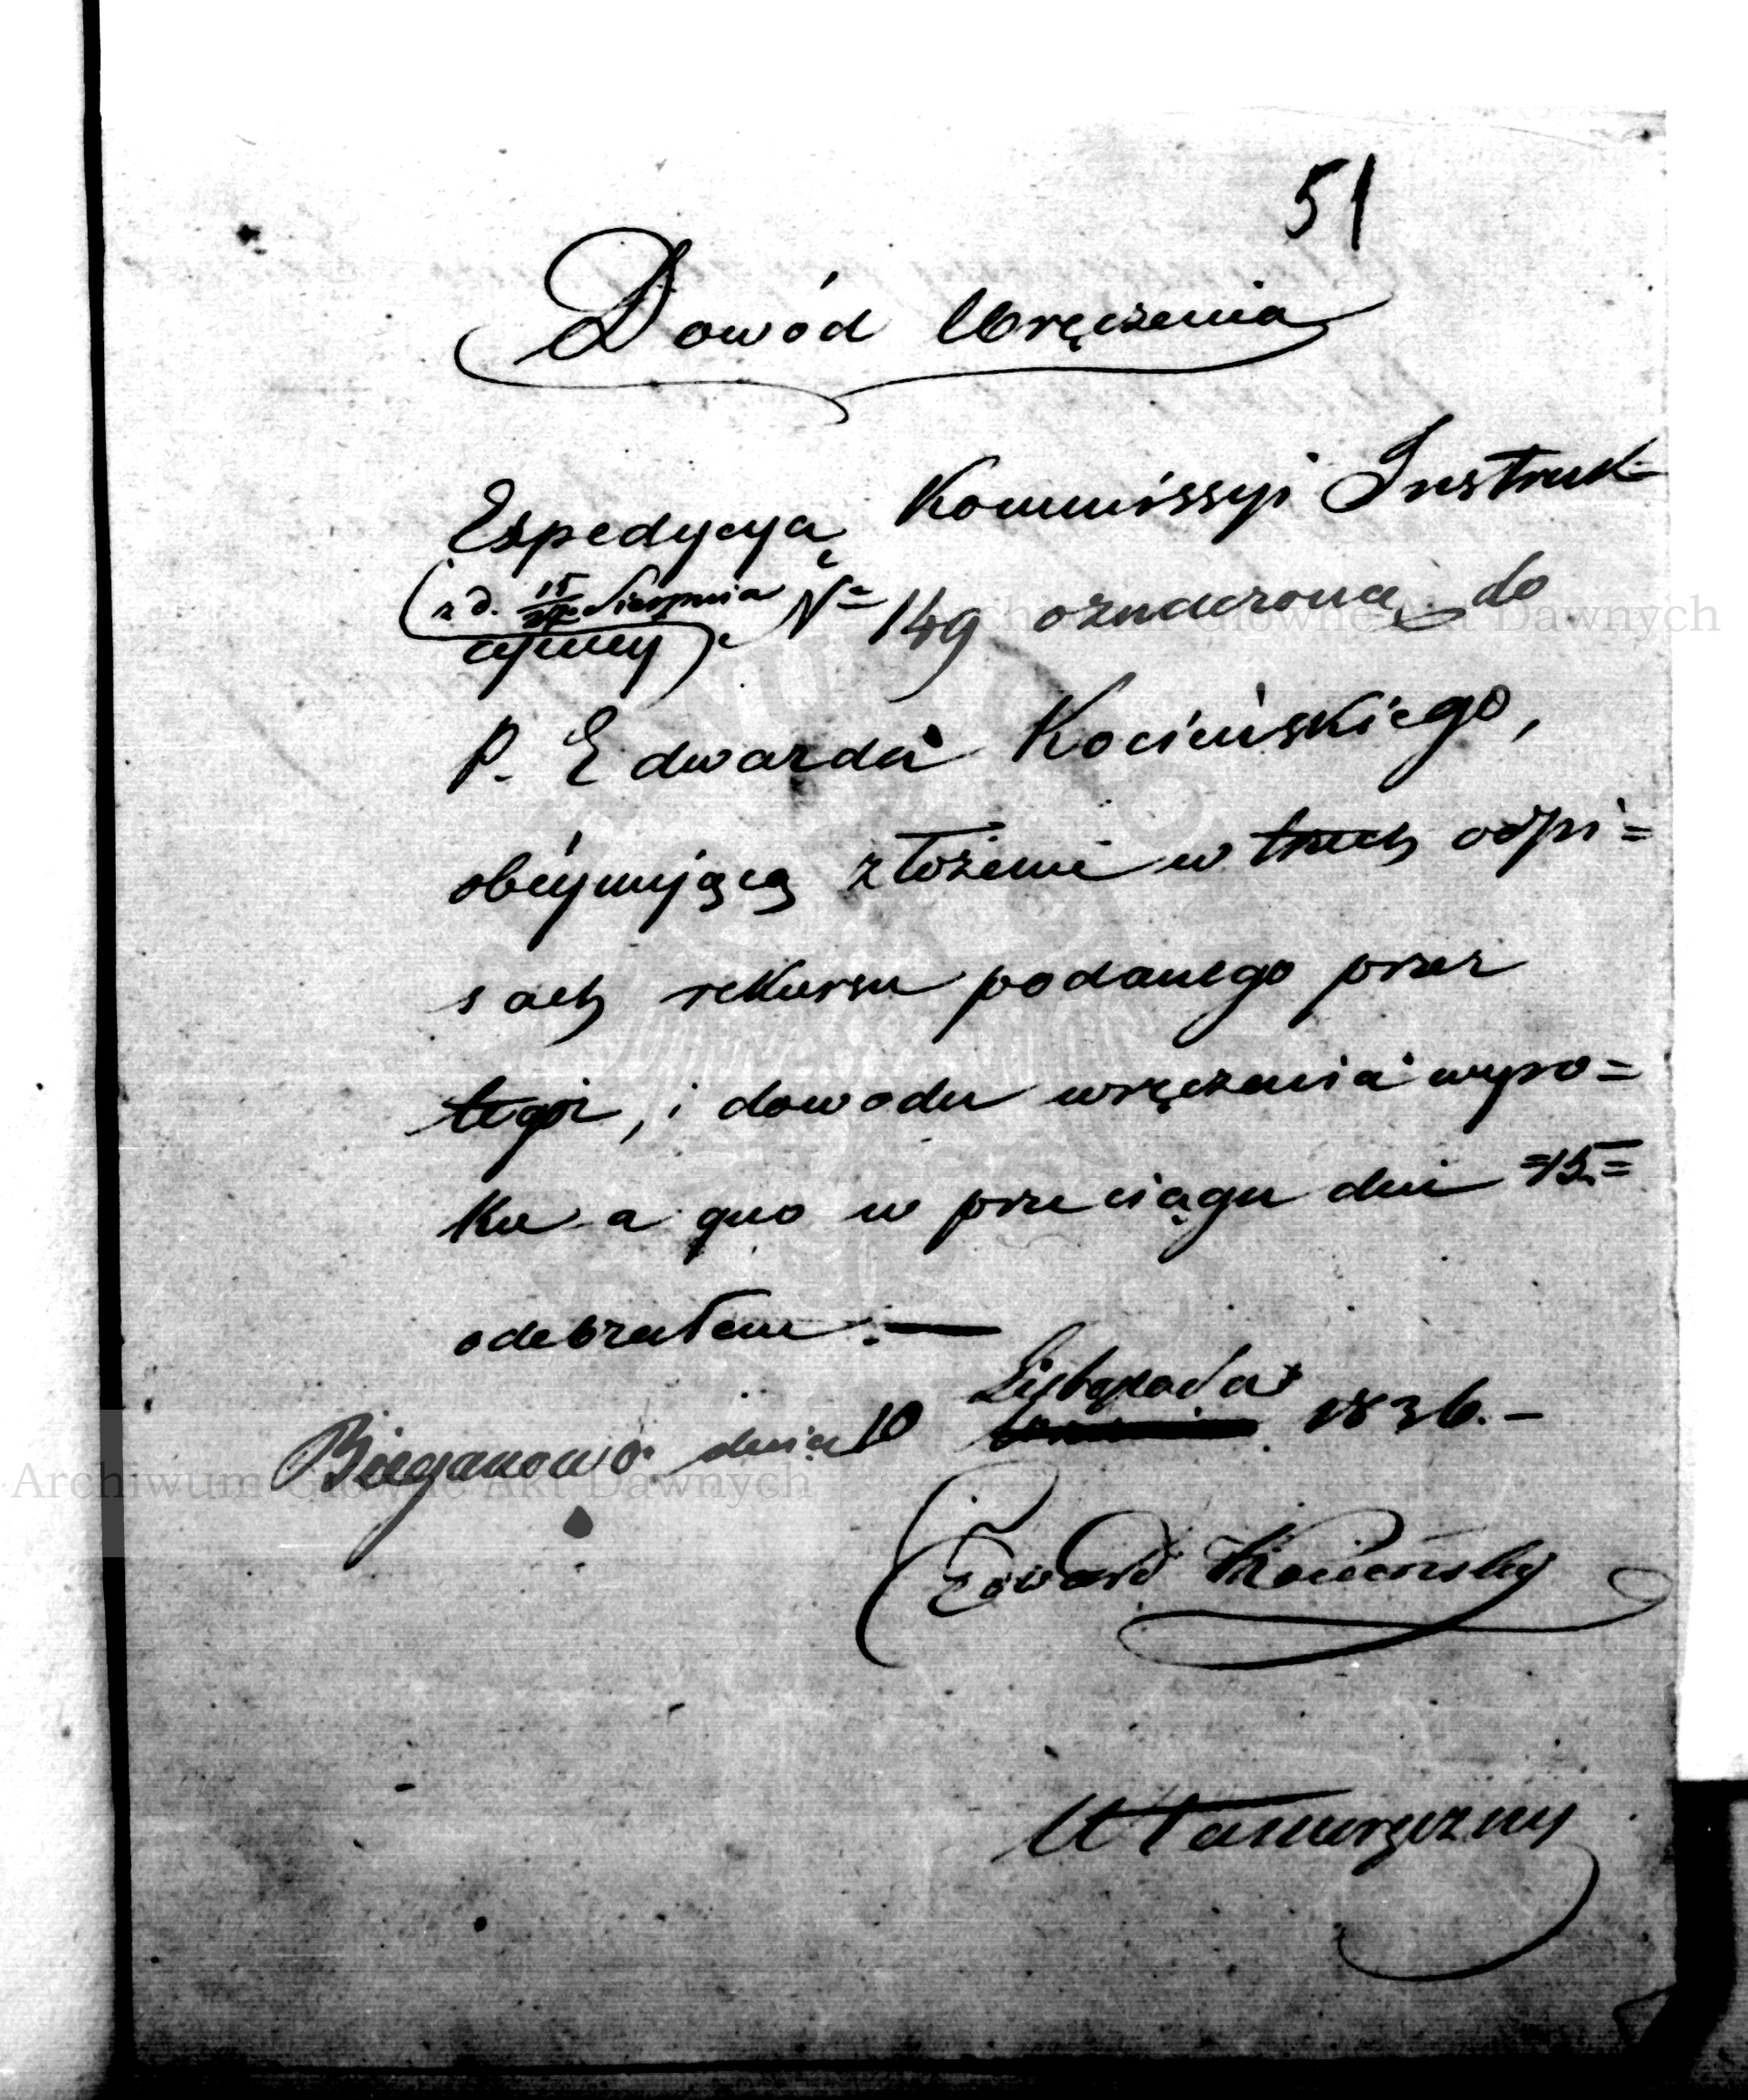 51
Dowód Wręczenia
Expedycyą Kommissyi Instruk=
z d. 15/27 Sierpnia
cyiney N= 149 oznaczoną do
P. Edwarda Kocińskiego,
obeymującą złożenie w trzech odpi=
sach rekursu podanego przez
tegoż, i dowodu wręczenia wyro=
ku a quo w przeciągu dni =15.=
odebrałem. —
Listopada
Bieganowo dnia 10 1836. –
Edward Kociński
Własnoręczny
Archiwum Główne Akt Dawnych
Archiwum Główne Akt Dawnych